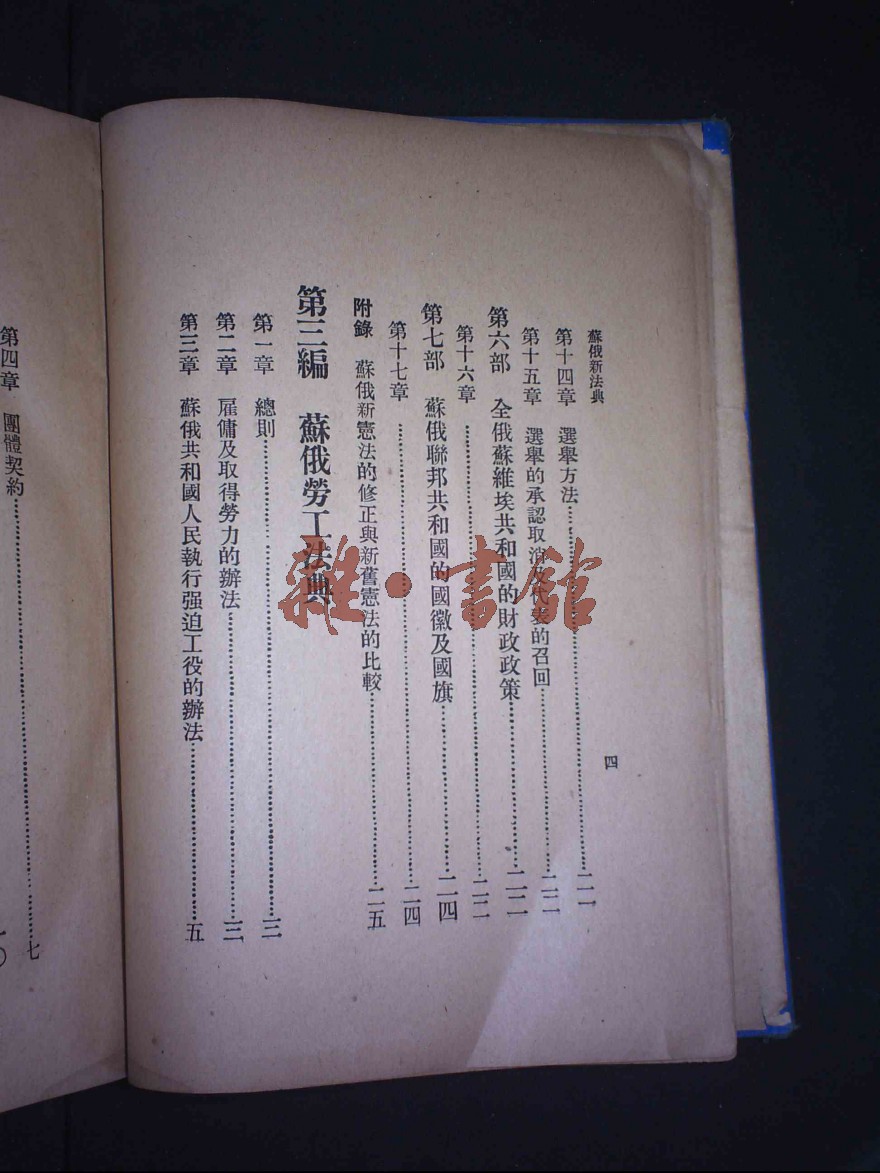 蘇俄新法典
四
第十四章　選舉方法……二一
第十五章　選舉的承認取消及代表的召回……二二
第六部　全俄蘇維埃共和國的財政政策……二二
第十六章……二二
第七部　蘇俄聯邦共和國的國徽及國旗……二四
第十七章……二四
附錄　蘇俄新憲法的修正與新舊憲法的比較……二五
第三編　蘇俄勞工法典
第一章　總則……三
第二章　雇傭及取得勞力的辦法……三
第三章　蘇俄共和國人民執行强迫工役的辦法……五
第四章　團體契約……七
一〇
雜·書館